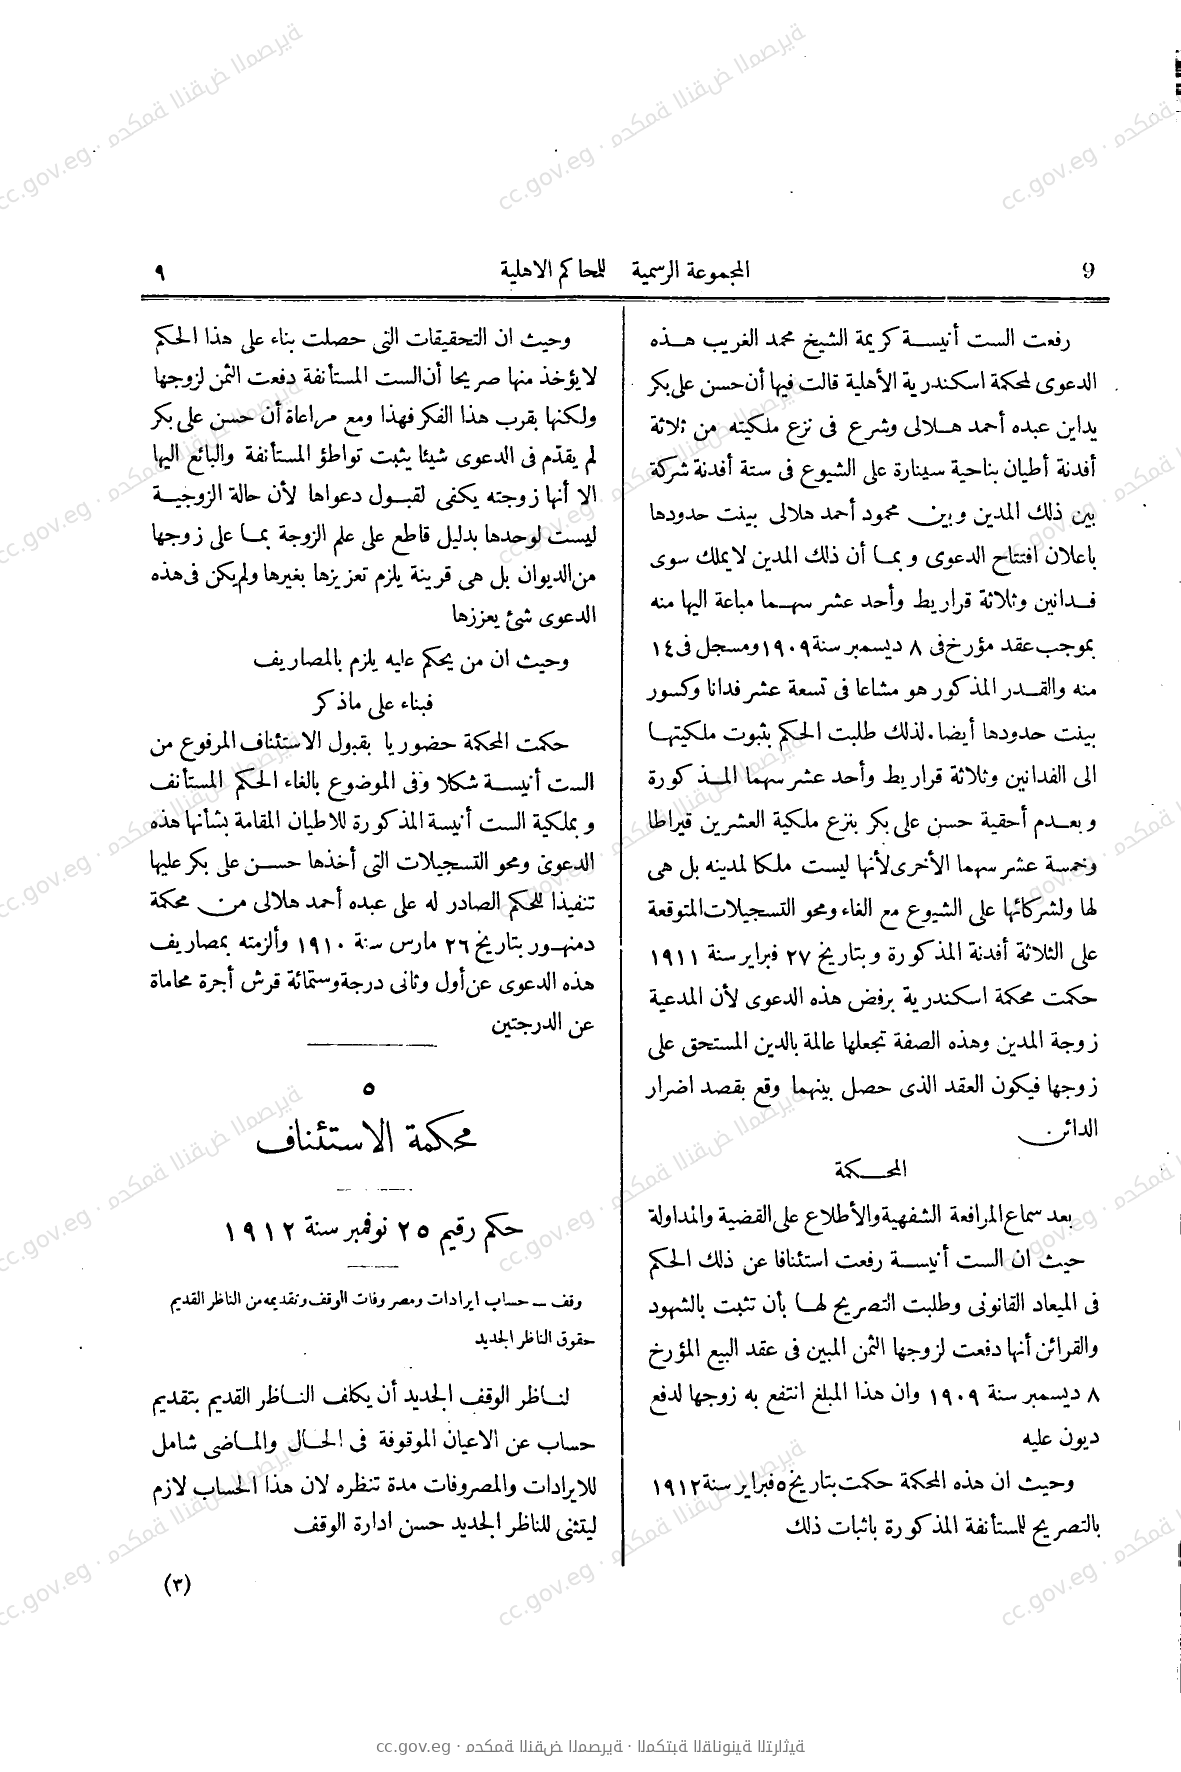 9
المجموعة الرسمية للمحاكم الاهلية
٩
رفعت الست أنيسة كريمة الشيخ محمد الغريب هذه
الدعوى لمحكمة اسكندرية الأهلية قالت فيها أن حسن على بكر
يداين عبده أحمد هلالى وشرع فى نزع ملكيته من ثلاثة
أفدنة أطيان بناحية سينارة على الشيوع فى ستة أفدنة شركة
بين ذلك المدين وبين محمود أحمد هلالى بينت حدودها
باعلان افتتاح الدعوى وبما أن ذلك المدين لايملك سوى
فدانين وثلاثة قراريط وأحد عشر سهما مباعة اليها منه
بموجب عقد مؤرخ فى ٨ ديسمبر سنة ١٩٠٩ ومسجل فى ١٤
منه والقدر المذكور هو مشاعا فى تسعة عشر فدانا وكسور
بينت حدودها أيضا. لذلك طلبت الحكم بثبوت ملكيتها
الى الفدانين وثلاثة قراريط وأحد عشر سهما المذكورة
وبعدم أحقية حسن على بكر بنزع ملكية العشرين قيراطا
وخمسة عشر سهما الأخرى لأنها ليست ملكا لمدينه بل هى
لها ولشركائها على الشيوع مع الغاء ومحو التسجيلات المتوقعة
على الثلاثة أفدنة المذكورة وبتاريخ ٢٧ فبراير سنة ١٩١١
حكمت محكمة اسكندرية برفض هذه الدعوى لأن المدعية
زوجة المدين وهذه الصفة تجعلها عالمة بالدين المستحق على
زوجها فيكون العقد الذى حصل بينهما وقع بقصد اضرار
الدائن
المحكمة
بعد سماع المرافعة الشفهية والأطلاع على القضية والمداولة
حيث ان الست أنيسة رفعت استئنافا عن ذلك الحكم
فى الميعاد القانونى وطلبت التصريح لها بأن تثبت بالشهود
والقرائن أنها دفعت لزوجها الثمن المبين فى عقد البيع المؤرخ
٨ ديسمبر سنة ١٩٠٩ وان هذا المبلغ انتفع به زوجها لدفع
ديون عليه
وحيث ان هذه المحكمة حكمت بتاريخ ٥ فبراير سنة ١٩١٢
بالتصريح للمستأنفة المذكورة باثبات ذلك
وحيث ان التحقيقات التى حصلت بناء على هذا الحكم
لا يؤخذ منها صريحا أن الست المستأنفة دفعت الثمن لزوجها
ولكنها بقرب هذا الفكر فهذا ومع مراعاة أن حسن على بكر
لم يقدّم فى الدعوى شيئا يثبت تواطؤ المستأنفة والبائع اليها
الا أنها زوجته يكفى لقبول دعواها لأن حالة الزوجية
ليست لوحدها بدليل قاطع على علم الزوجة بما على زوجها
من الديوان بل هى قرينة يلزم تعزيزها بغيرها ولم يكن فى هذه
الدعوى شئ يعززها
وحيث ان من يحكم عليه يلزم بالمصاريف
فبناء على ماذكر
حكمت المحكمة حضوريا بقبول الاستئناف المرفوع من
الست أنيسة شكلا وفى الموضوع بالغاء الحكم المستأنف
وبملكية الست أنيسة المذكورة للاطيان المقامة بشأنها هذه
الدعوى ومحو التسجيلات التى أخذها حسن على بكر عليها
تنفيذا للحكم الصادر له على عبده أحمد هلالى من محكمة
دمنهور بتاريخ ٢٦ مارس سنة ١٩١٠ وألزمته بمصاريف
هذه الدعوى عن أول وثانى درجة وستمائة قرش أجرة محاماة
عن الدرجتين
٥
محكمة الاستئناف
حكم رقيم ٢٥ نوفمبر سنة ١٩١٢
وقف — حساب ايرادات ومصروفات الوقف وتقديمه من الناظر القديم
حقوق الناظر الجديد
لناظر الوقف الجديد أن يكلف الناظر القديم بتقديم
حساب عن الاعيان الموقوفة فى الحال والماضى شامل
للايرادات والمصروفات مدة تنظره لان هذا الحساب لازم
ليتثنى للناظر الجديد حسن ادارة الوقف
(٣)
cc.gov.eg · محكمة النقض المصرية · المكتبة القانونية التراثية